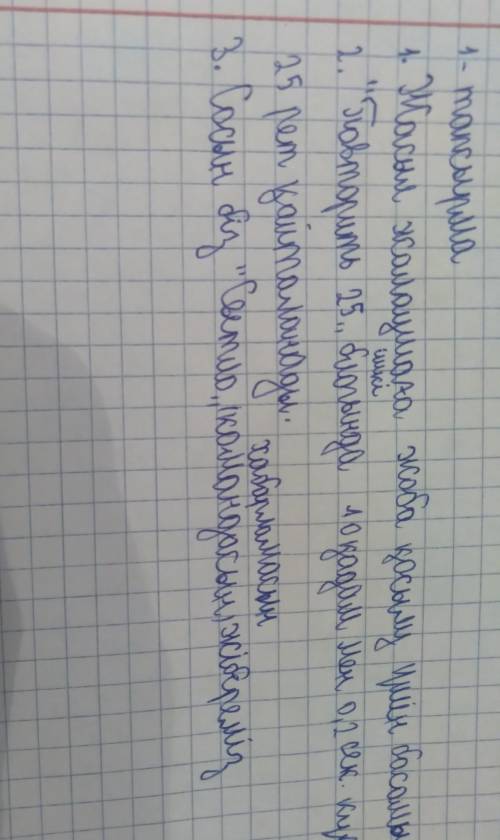 1-тапсырма
1. Жасыл жалаушаға жоба қосылу үшін басамы
2. "Повторить 25" ішкі блогында 10 қадам мен 0,2 сек. кү
25 рет қайталанады.
3. Сосын біз "Сытио" хабарламасын жібереміз